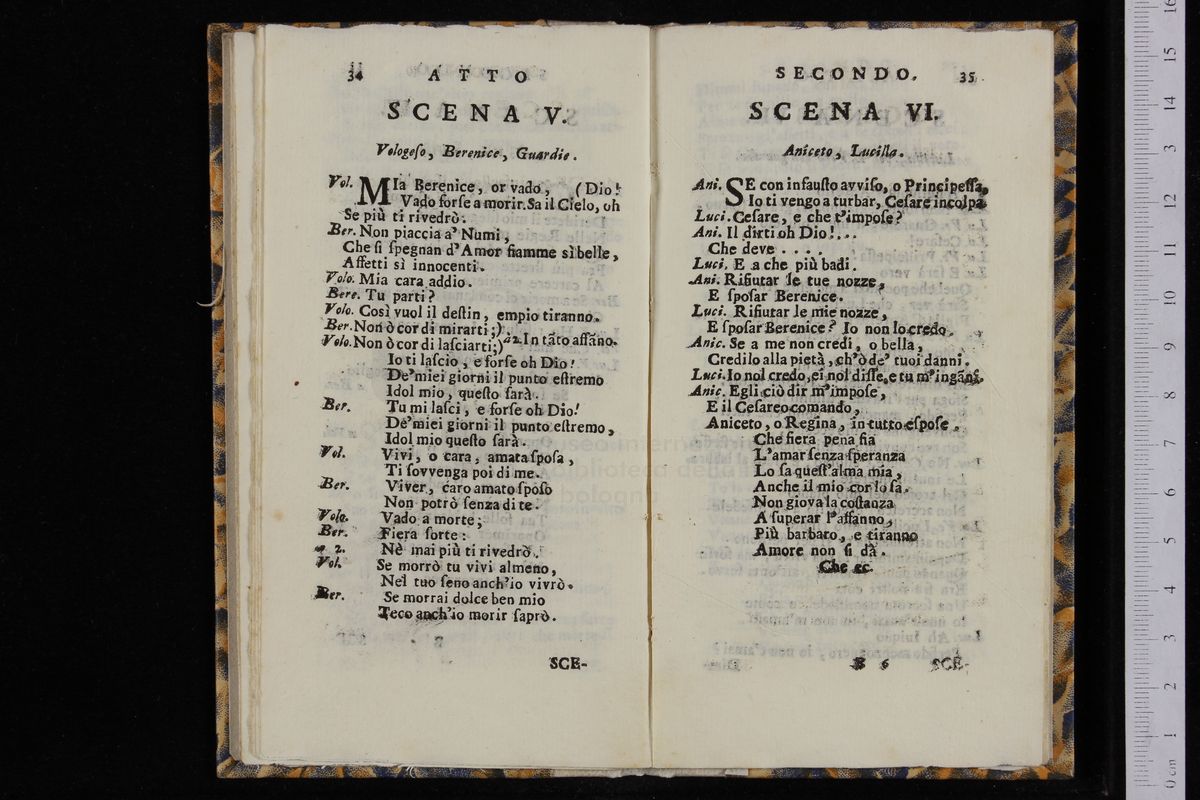 34 ATTO
SCENA V.
Vologeſo, Berenice, Guardie.
Vol. MIa Berenice, or vado, (Dio!
Vado forſe a morir. Sa il Cielo, oh
Se più ti rivedrò.
Ber. Non piaccia a' Numi,
Che ſi ſpegnan d'Amor fiamme sì belle,
Affetti sì innocenti.
Volo. Mia cara addio.
Bere. Tu parti?
Volo. Così vuol il deſtin, empio tiranno.
Ber. Non ò cor di mirarti;)
Volo. Non ò cor di laſciarti;) a 2. In tãto affãno.
Io ti laſcio, e forſe oh Dio!
De'miei giorni il punto eſtremo
Idol mio, queſto ſarà.
Ber. Tu mi laſci, e forſe oh Dio!
De'miei giorni il punto eſtremo,
Idol mio queſto ſarà.
Vol. Vivi, o cara, amata ſpoſa,
Ti ſovvenga poi di me.
Ber. Viver, caro amato ſpoſo
Non potrò ſenza di te.
Volo. Vado a morte;
Ber. Fiera ſorte:
a 2. Nè mai più ti rivedrò.
Vol. Se morrò tu vivi almeno,
Nel tuo ſeno anch'io vivrò.
Ber. Se morrai dolce ben mio
Teco anch'io morir ſaprò.
SCE-
SECONDO. 35
SCENA VI.
Aniceto, Lucilla.
Ani. SE con infauſto avviſo, o Principeſſa,
Io ti vengo a turbar, Ceſare incolpa.
Luci. Ceſare, e che t'impoſe?
Ani. Il dirti oh Dio!...
Che deve ....
Luci. E a che più badi.
Ani. Rifiutar le tue nozze,
E ſpoſar Berenice.
Luci. Rifiutar le mie nozze,
E ſpoſar Berenice? Io non lo credo.
Anic. Se a me non credi, o bella,
Credilo alla pietà, ch'ò de' tuoi danni.
Luci. Io nol credo, ei nol diſſe, e tu m'ingãni.
Anic. Egli ciò dir m'impoſe,
E il Ceſareo comando,
Aniceto, o Regina, in tutto eſpoſe.
Che fiera pena ſia
L'amar ſenza ſperanza
Lo ſa queſt'alma mia,
Anche il mio cor lo ſa.
Non giova la coſtanza
A ſuperar l'affanno,
Più barbaro, e tiranno
Amore non ſi dà.
Che &c.
B 6 SCE-
museo internazionale
biblioteca della
bologna
0 cm 1 2 3 4 5 6 7 8 9 10 11 12 13 14 15 16